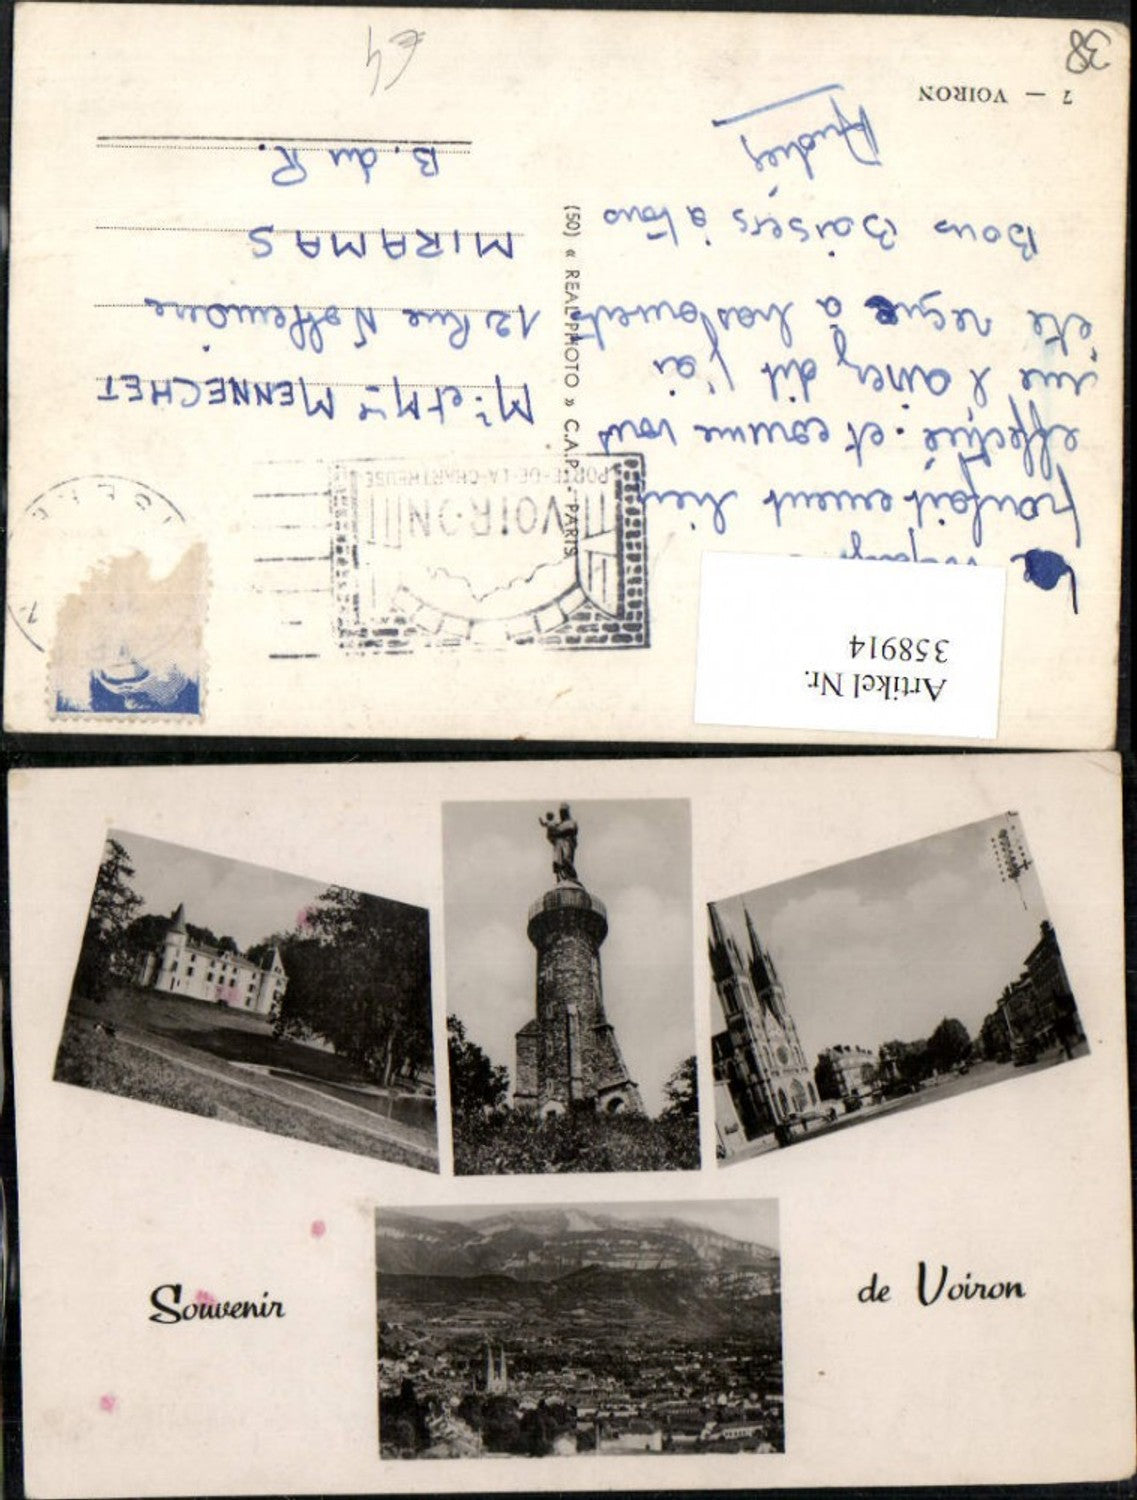 Artikel Nr.
358914
Le voyage
parfaitement bien
effectué. et comme vous
me l'aviez dit j'ai
été reçue à bras ouverts
Bons Baisers à tous
7 — VOIRON
38
(50) « REAL-PHOTO » C.A.P. - PARIS
VOIRON
PORTE-DE-LA-CHARTREUSE
ISERE
Mr. et Mme MENNECHET
MIRAMAS
B. du R.
€4
Souvenir
de Voiron